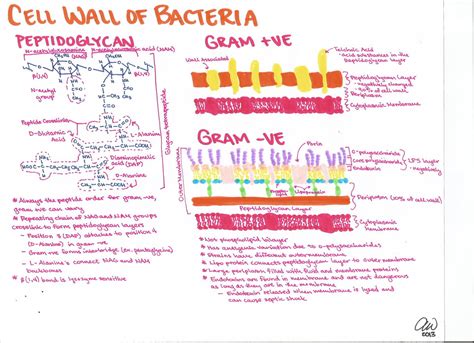 CELL WALL OF BACTERIA
PEPTIDOGLYCAN
N-acetylglucosamine (NAG)
N-acetylmuramic acid (NAM)
β(1,4)
β(1,4)
N-acetyl
group
Peptide Crosslinks
D-Glutamic
L-Alanine
Glycan tetrapeptide
Diaminopimelic
acid (DAP)
D-Alanine
* Always the peptide order for gram -ve,
gram +ve can vary
* Repeating chain of NAG and NAM groups
crosslink to form peptidoglycan layers
- Position 3 (DAP) attaches to position 4
(D-Alanine) in gram -ve
- Gram +ve forms interbridge (ex. pentaglycine)
- L-Alanine's connect NAG and NAM
backbones
* β(1,4) bond is lysozyme sensitive
GRAM +VE
Wall Associated
Teichoic Acid
- acid substances in the
peptidoglycan layer
Peptidoglycan Layer
- negatively charged
- 90% of cell wall
Periplasm
Cytoplasmic Membrane
GRAM -VE
Porin
O-polysaccharide
Core polysaccharide
LPS layer
Endotoxin
- negativity
Outer Membrane
Lipoprotein
Peptidoglycan Layer
Periplasm (20% of cell wall)
Cytoplasmic
Membrane
* Not phospholipid bilayer
* Has antigenic variation due to O-polysaccharide
* Strains have different outer membrane
* Lipo protein connects peptidoglycan layer to outer membrane
* Large periplasm filled with fluid and membrane proteins
* Endotoxins are found in membrane and are not dangerous
as long as they are in the membrane
- Endotoxin released when membrane is lysed and
can cause septic shock
2013